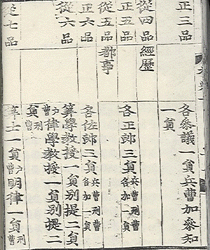 正三品
各參議一員兵曹加參知
一員
從四品
經歷
正五品
各正郎三員兵曹刑曹各加一員
從五品
都事
正六品
各佐郎三員兵曹刑曹各加一員
從六品
算學教授一員別提二員
律學教授一員別提二
員
七品
算士一員 明律一員